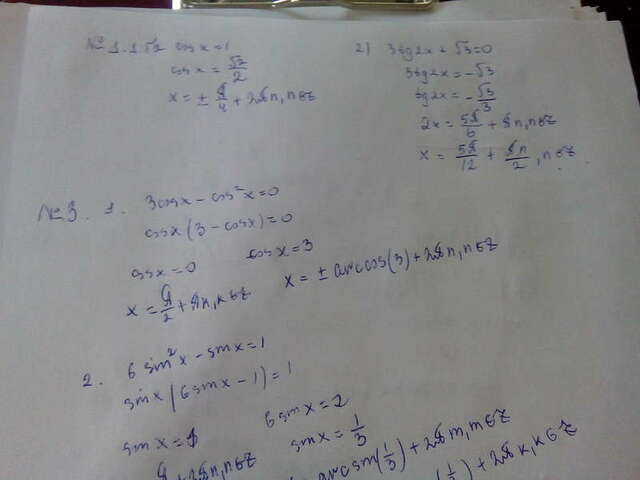 № 1. 1. √2 cos x = 1
cos x = √2/2
x = ± π/4 + 2πn, n∈Z
2) 3tg2x + √3 = 0
3tg2x = -√3
tg2x = -√3/3
2x = 5π/6 + πn, n∈Z
x = 5π/12 + πn/2, n∈Z
№3. 1. 3cosx - cos²x = 0
cosx(3 - cosx) = 0
cosx = 0 cosx = 3
x = π/2 + πn, k∈Z x = ± arccos(3) + 2πn, n∈Z
2. 6sin²x - sinx = 1
sinx(6sinx - 1) = 1
sinx = 1 6sinx = 2
sinx = 1/3
+ 2πn, n∈Z arcsin(1/3) + 2πm, m∈Z
(1/3) + 2πk, k∈Z